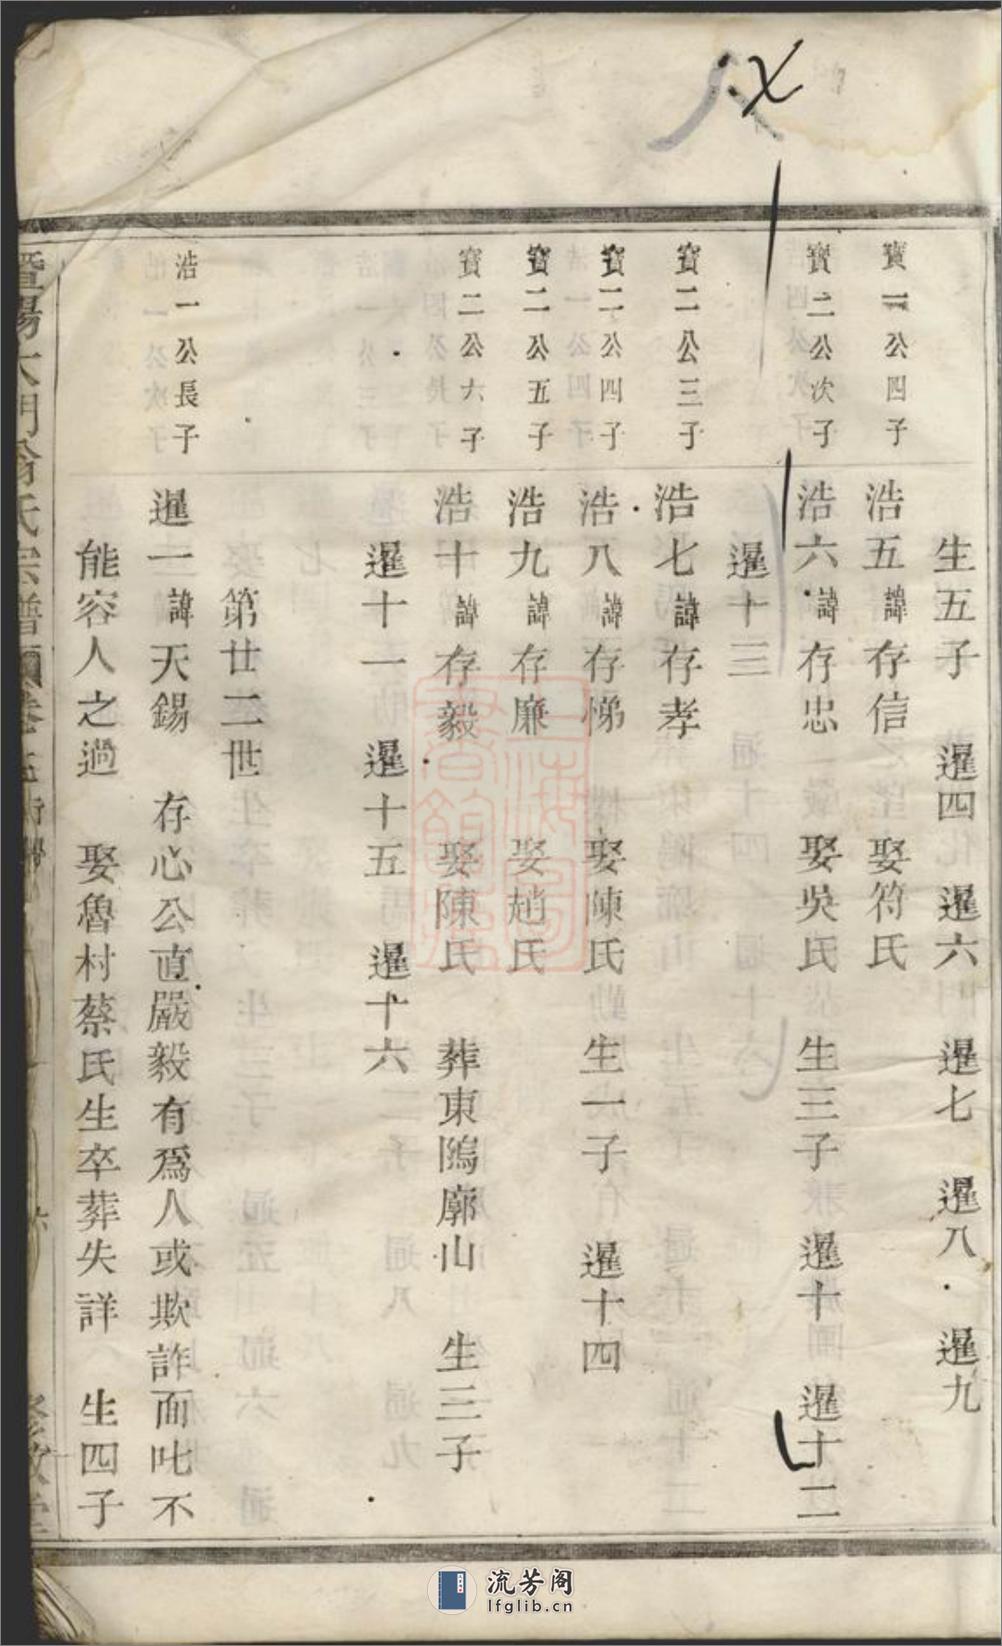 生五子 暹四 暹六 暹七 暹八 暹九
寶一公四子 浩五諱存信 娶符氏
寶二公次子 浩六諱存忠 娶吳氏 生三子 暹十 暹十二
暹十三
寶二公三子 浩七諱存孝
寶二公四子 浩八諱存悌 娶陳氏 生一子 暹十四
寶二公五子 浩九諱存廉 娶趙氏
寶二公六子 浩十諱存毅 娶陳氏 葬東隝廓山 生三子
暹十一 暹十五 暹十六
第廿二世
浩一公長子 暹一諱天錫 存心公直嚴毅有爲人或欺詐面叱不
能容人之過 娶魯村蔡氏生卒葬失詳 生四子
暨陽大門 氏宗譜
流芳阁
lfglib.cn